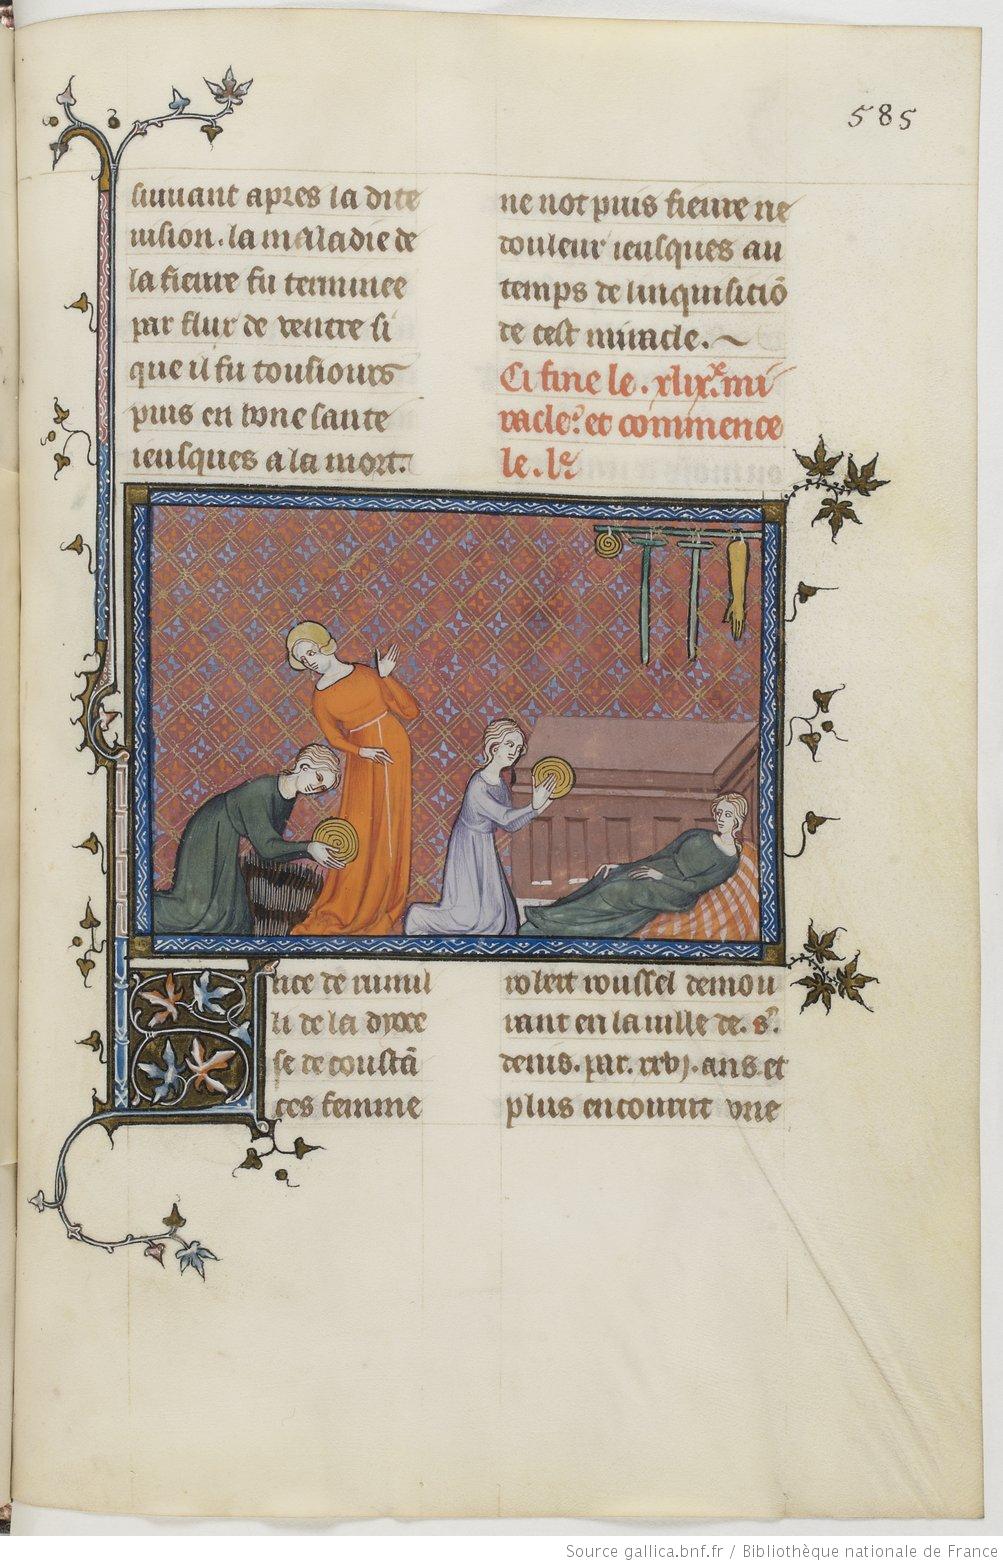 585
suiuant apres la dite
uision. la maladie de
la fieure fu terminee
par flux de uentre si
que il fu tousiours
puis en bone sante
ieusques a la mort.
ne not puis fieure ne
douleur ieusques au
temps de linquisiciõ
de cest miracle.
Ci fine le .xlixͤ. mi
racle. et commence
le .lͤ.
lice de rumil
li de la dyoce
se de coustã
ces femme
robert roussel demou
rant en la uille de .s.
denis. par .xxvj. ans et
plus encourut une
Source gallica.bnf.fr / Bibliothèque nationale de France